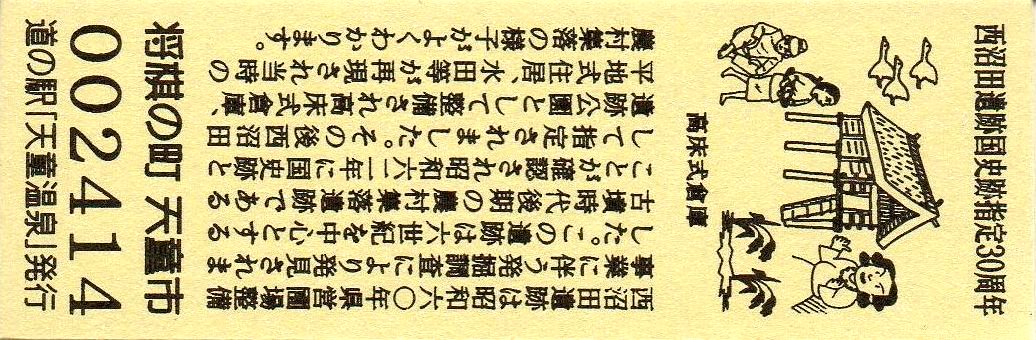 西沼田遺跡国史跡指定30周年
高床式倉庫
西沼田遺跡は昭和六〇年県営圃場整備
事業に伴う発掘調査により発見されま
した。この遺跡は六世紀を中心とする
古墳時代後期の農村集落遺跡である
ことが確認され昭和六二年に国史跡と
して指定されました。その後西沼田
遺跡公園として整備され高床式倉庫、
平地式住居、水田等が再現され当時の
農村集落の様子がよくわかります。
将棋の町 天童市
002414
道の駅「天童温泉」発行